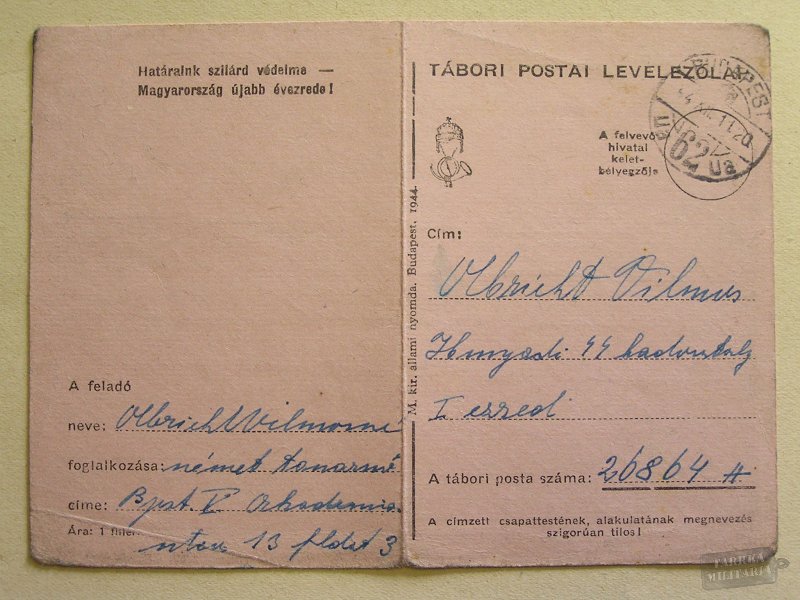 Határaink szilárd védelme —
Magyarország újabb évezrede!
A feladó
neve: Olbricht Vilmosné
foglalkozása: német tanárnő
címe: Bpst. V Akadémia
Ára: 1 fillér.
utca 13 fldst 3
M. kir. állami nyomda. Budapest, 1944.
TÁBORI POSTAI LEVELEZŐLAP
BUDAPEST
62
A felvevő
hivatal
kelet-
bélyegzője
Cím:
Olbricht Vilmos
Hunyadi SS
I ezred
A tábori posta száma: 26864
A címzett csapattestének, alakulatának megnevezés
szigorúan tilos!
FABRIKA
MILITARIA